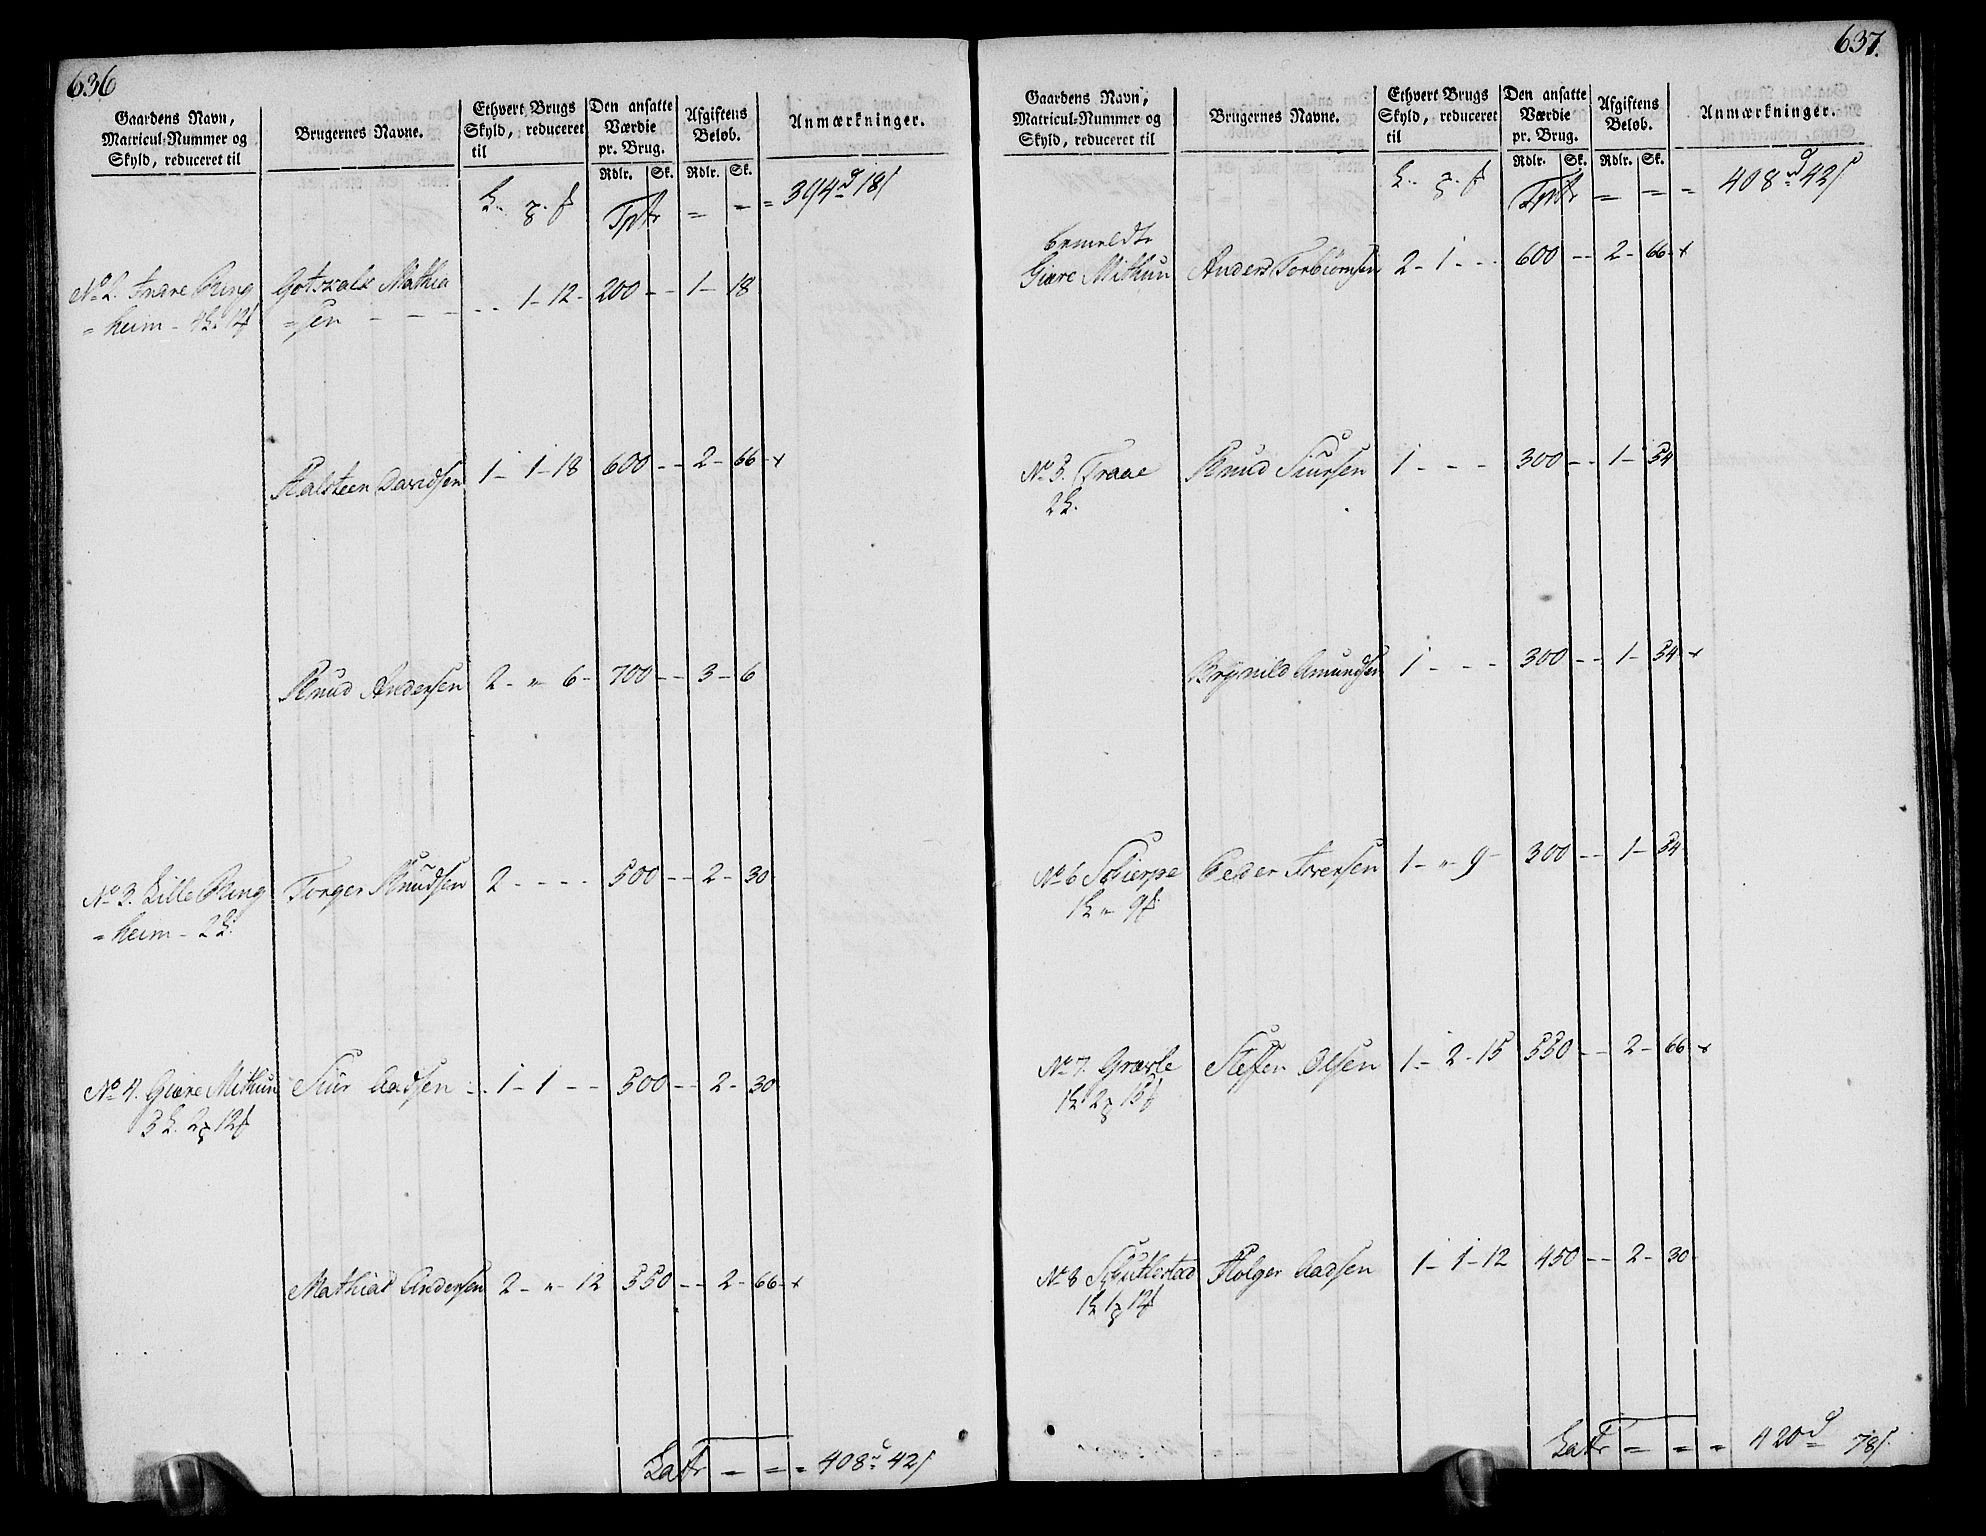 636
Gaardens Navn,
Matricul-Nummer og
Skyld, reduceret til
Brugernes Navne.
Ethvert Brugs
Skyld, reduceret
til
Den ansatte
Værdie
pr. Brug.
Afgiftens
Beløb.
Anmærkninger.
Rdlr. Sk. Rdlr. Sk.
Tptr = = = 394 d 18 s
No 2. Indre Ring Gotskalk Mathia - - 1 - 12 - 200 - - 1 - 18
= heim - 4 12 =sen
Halsteen Davidsen 1 - 1 - 18 600 - - 2 - 66 - x
Knud Andersen 2 - " 6 - 700 - - 3 - 6
No 3. Lille Ring Torger Knudsen 2 - - - - 500 - - 2 - 30
= heim - 2
No 4. Giære Mithun Siur Aadsen - - 1 - 1 - - 500 - - 2 - 30
3 2 12
Mathias Andersen 2 - " - 12 550 - - 2 - 66 - x
Latr = = = 408 d 42 s
637.
Gaardens Navn,
Matricul-Nummer og
Skyld, reduceret til
Brugernes Navne.
Ethvert Brugs
Skyld, reduceret
til
Den ansatte
Værdie
pr. Brug.
Afgiftens
Beløb.
Anmærkninger.
Rdlr. Sk. Rdlr. Sk.
Tptr = = = 408 d 42 s
bemeldte
Giære Mithun Anders Torbiörnsen 2 - 1 - - - 600 - - 2 - 66 - x
No 5. Traae Knud Siursen 1 - - - 300 - - 1 - 54
2
Brÿnild Amundsen 1 - - - 300 - - 1 - 54 - x
No 6 Schierpe Peder Iversen 1 - " 9 - 300 - - 1 - 54
1 " 9
No 7. Gravle Steffen Olsen 1 - 2 - 15 550 - - 2 - 66 - x
1 2 15
No 8 Holger Aadsen 1 - 1 - 12 450 - - 2 - 30
1 1 12
Latr = = = 420 d 78 s